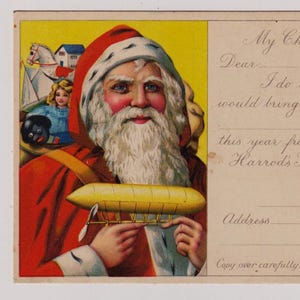 My Ch
Dear
I do
would bring
this year fr
Harrod's
Address
Copy over carefully